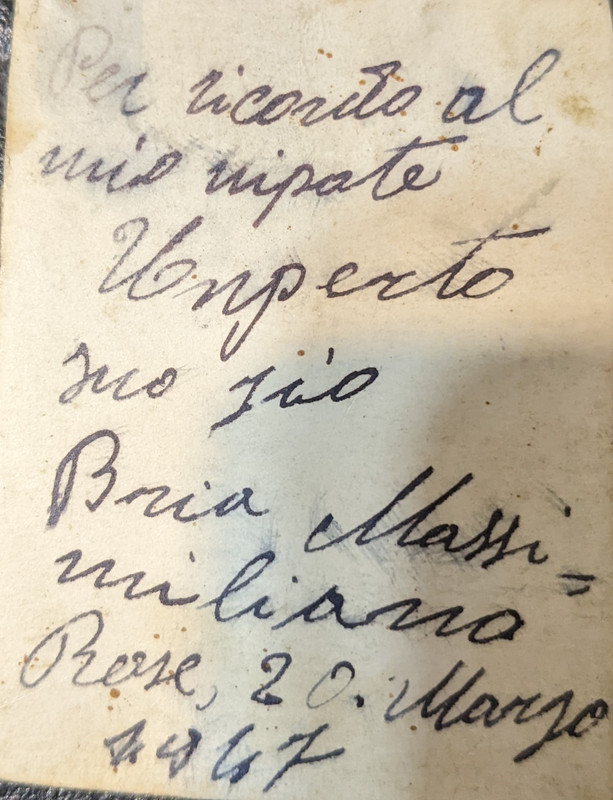 Per ricordo al
mio nipote
Unperto
suo zio
Bria Massi=
miliano
Rose, 20. Marzo
1947